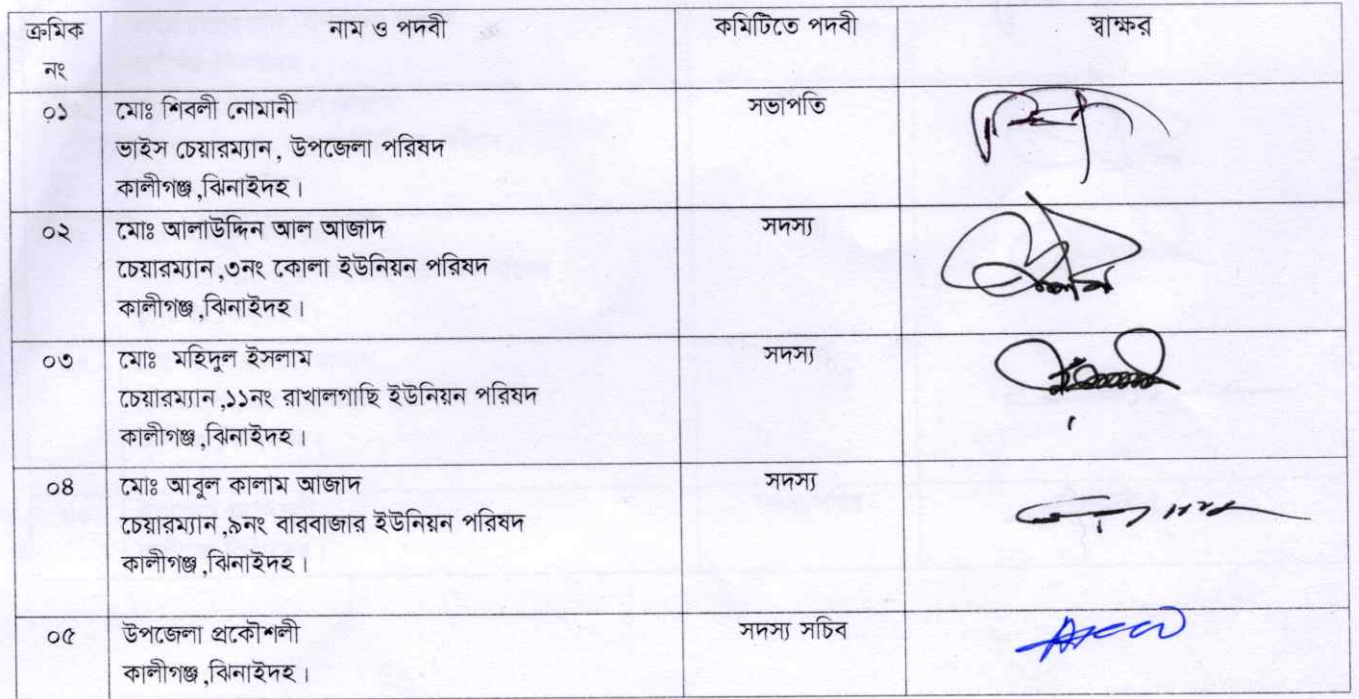 ক্রমিক নং	নাম ও পদবী	কমিটিতে পদবী	স্বাক্ষর
০১	মোঃ শিবলী নোমানী	সভাপতি
ভাইস চেয়ারম্যান, উপজেলা পরিষদ
কালীগঞ্জ,ঝিনাইদহ।
০২	মোঃ আলাউদ্দিন আল আজাদ	সদস্য
চেয়ারম্যান,৩নং কোলা ইউনিয়ন পরিষদ
কালীগঞ্জ,ঝিনাইদহ।
০৩	মোঃ মহিদুল ইসলাম	সদস্য
চেয়ারম্যান,১১নং রাখালগাছি ইউনিয়ন পরিষদ
কালীগঞ্জ,ঝিনাইদহ।
০৪	মোঃ আবুল কালাম আজাদ	সদস্য
চেয়ারম্যান,৯নং বারবাজার ইউনিয়ন পরিষদ
কালীগঞ্জ,ঝিনাইদহ।
০৫	উপজেলা প্রকৌশলী	সদস্য সচিব
কালীগঞ্জ,ঝিনাইদহ।